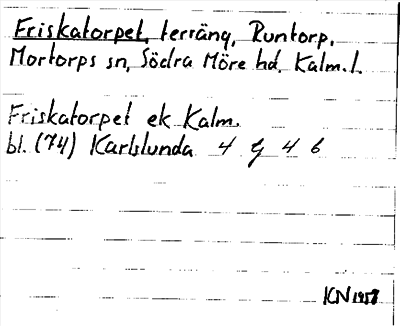 Friskatorpet, terräng, Runtorp,
Mortorps sn, Södra Möre hd, Kalm. l.
Friskatorpet ek Kalm.
bl. (74) Karlslunda 4 g 4 b
KN 1958